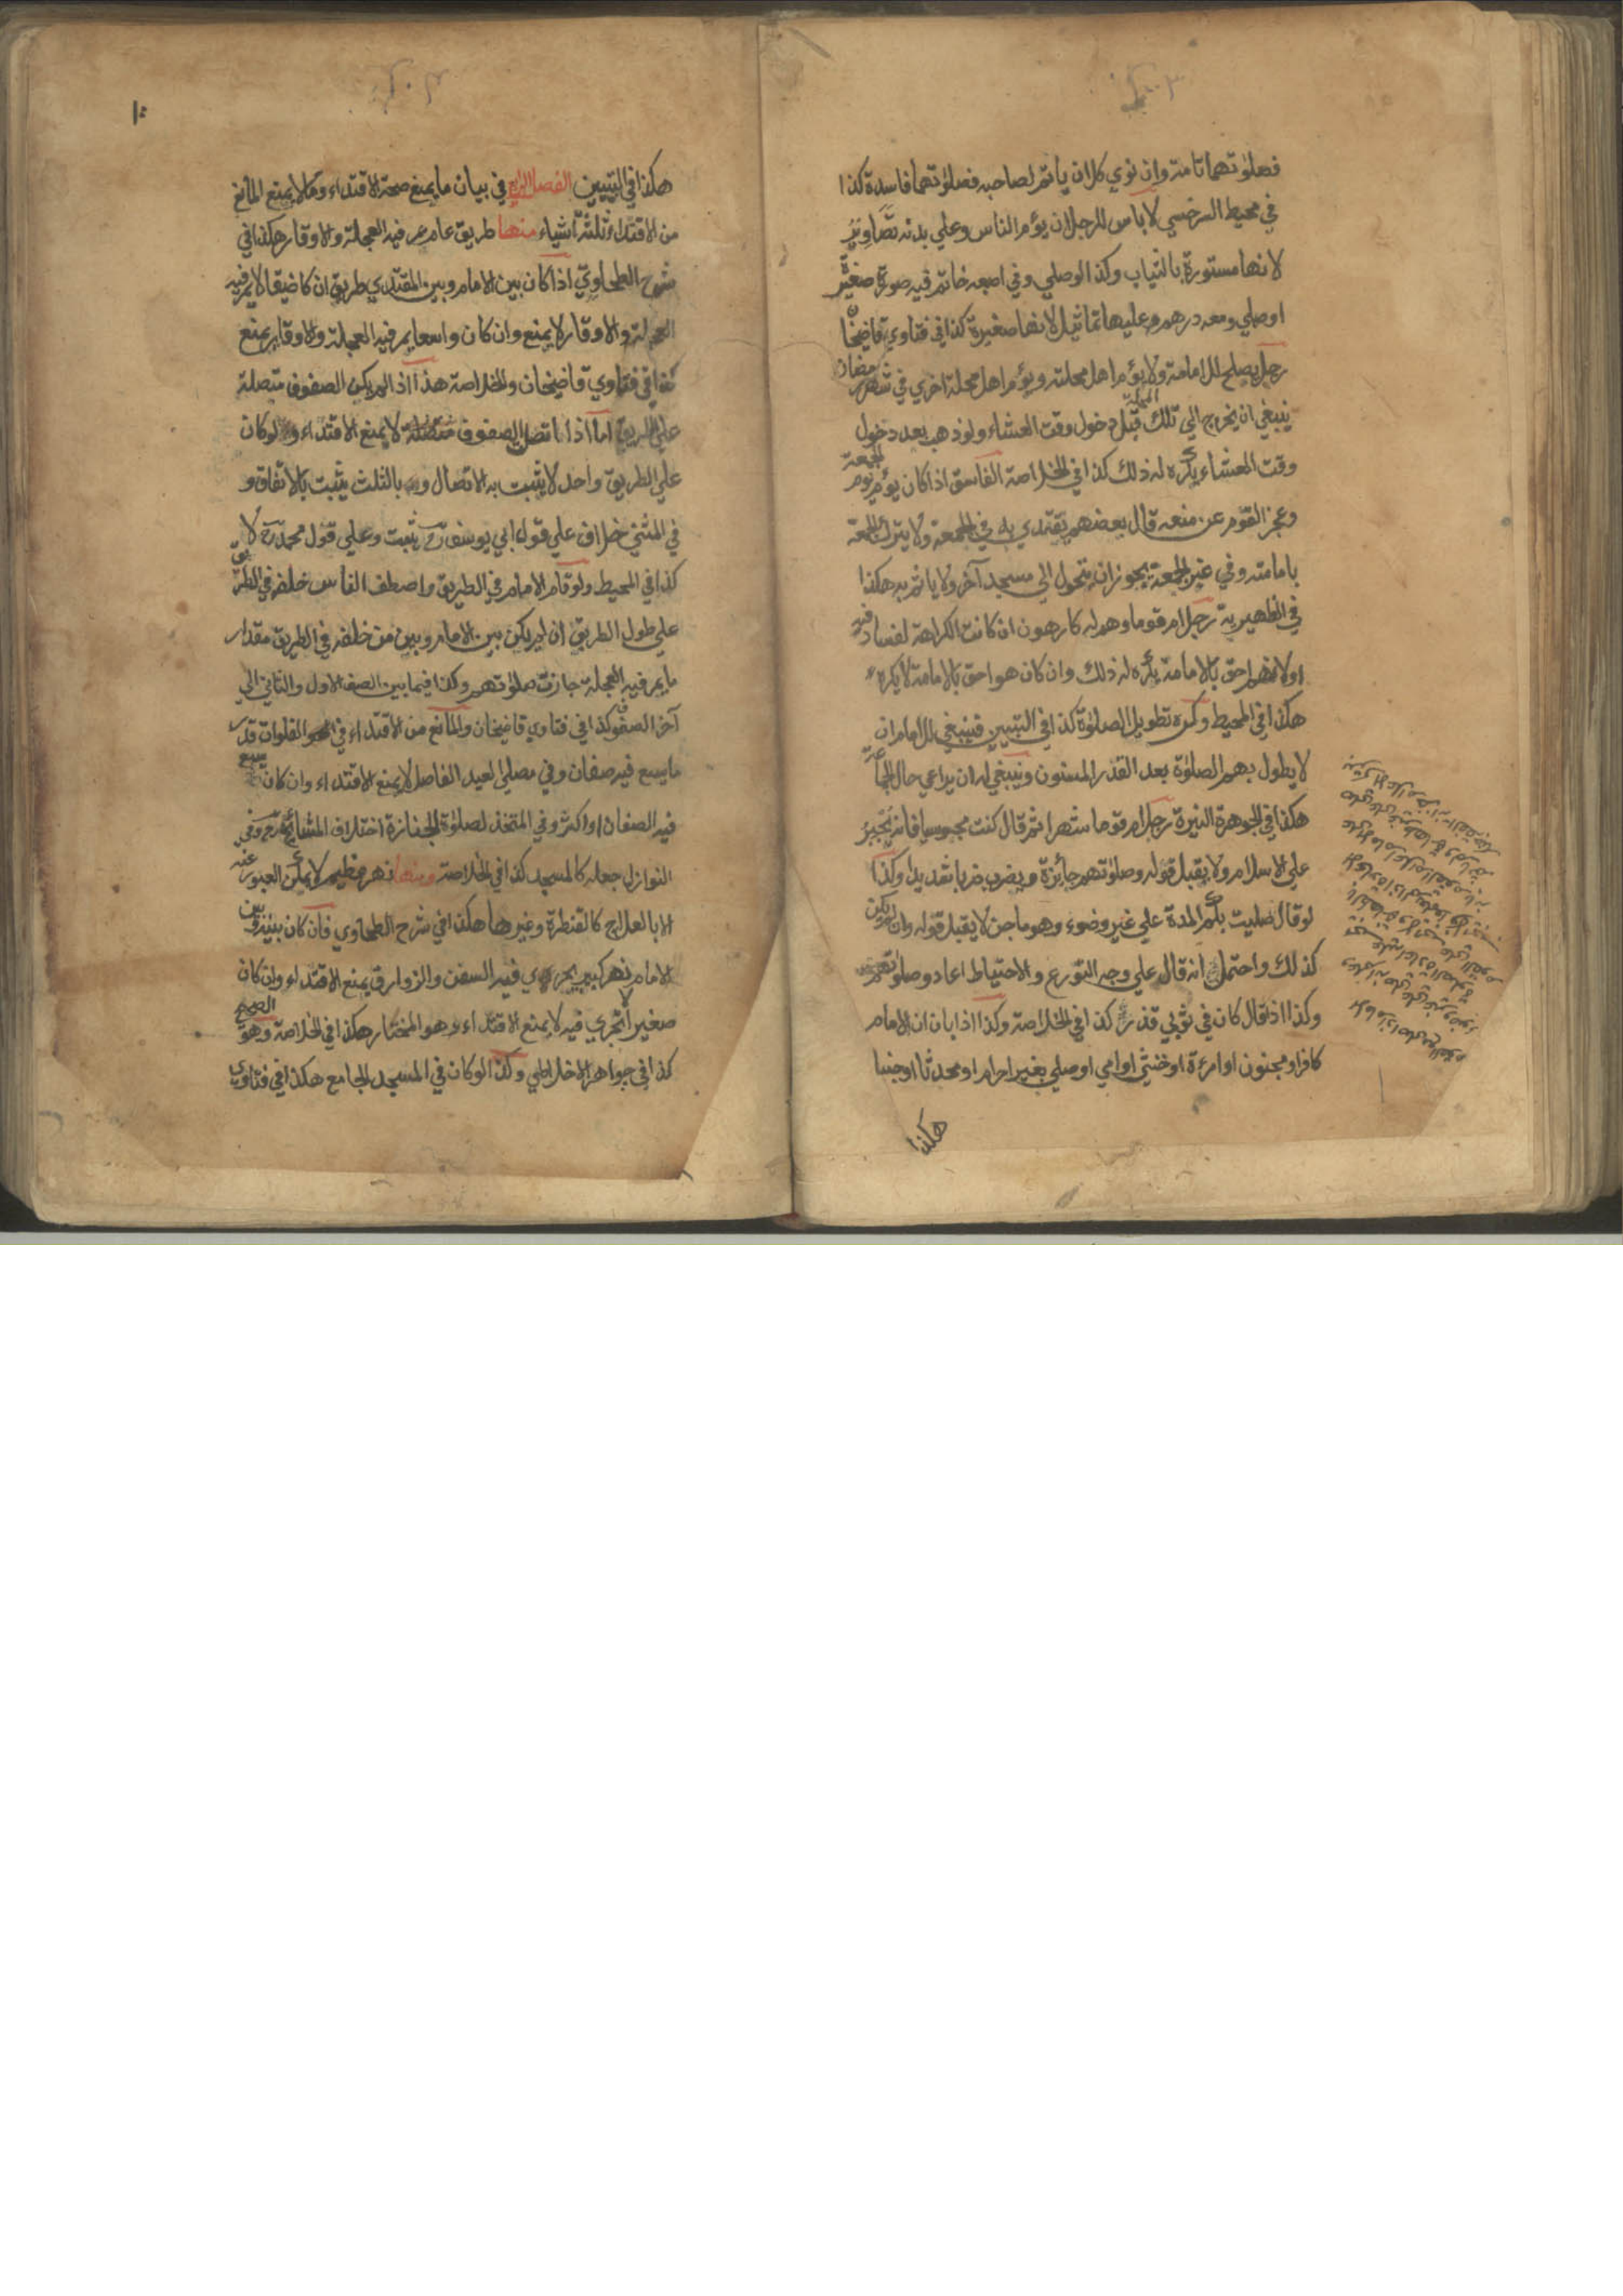 فصلوتهما تامة وان نوي كل ان يأتم لصاحبه فصلوتهما فاسدة كذا
في محيط السرخسي لا باس للرجل ان يؤم الناس وعلي بدنه تصاوير
لانها مستورة بالثياب وكذا لو صلي وفي اصبعه خاتم فيه صورة صغيرة
او صلي ومعه درهم عليها تماثيل لانها صغيرة كذا في فتاوي قاضيخان
رجل يصلح للامامة ولا يؤم اهل محلته ويؤم اهل محلة اخري في شهر رمضان
ينبغي ان يخرج الي تلك المحلة قبل دخول وقت العشاء ولو ذهب بعد دخول
وقت العشاء يكره له ذلك كذا في الخلاصة الفاسق اذا كان يؤم يوم الجمعة
وعجز القوم عن منعه قال بعضهم يقتدي به في الجمعة ولا يترك الجمعة
بامامته وفي غير الجمعة يجوز ان يتحول الي مسجد آخر ولا ياثم به هكذا
في الظهيرية رجل ام قوما وهم له كارهون ان كانت الكراهة لفساد فيه
او لانهم احق بالامامة يكره له ذلك وان كان هو احق بالامامة لا يكره
هكذا في المحيط وكره تطويل الصلوة كذا في التبيين فينبغي للامام ان
لا يطول بهم الصلوة بعد القدر المسنون وينبغي له ان يراعي حال الجماعة
هكذا في الجوهرة النيرة رجل ام قوما شهرا ثم قال كنت مجوسيا فانه يجبر
علي الاسلام ولا يقبل قوله وصلوتهم جائزة ويضرب ضربا شديدا وكذا
لو قال صليت بكم المدة علي غير وضوء وهو ماجن لا يقبل قوله وان لم يكن
كذلك واحتمل انه قال علي وجه التورع والاحتياط اعادوا صلوتهم
وكذا اذا قال كان في ثوبي قذر كذا في الخلاصة وكذا اذا بان ان الامام
كافر او مجنون او امرءة او خنثي او امي او صلي بغير احرام او محدثا او جنبا
هكذا
١٠
هكذا في التبيين الفصل الرابع في بيان ما يمنع صحة الاقتداء وما لا يمنع المانع
من الاقتداء ثلثة اشياء منها طريق عام يمر فيه العجلة والاوقار هكذا في
شرح الطحاوي اذا كان بين الامام وبين المقتدي طريق ان كا ضيقا لا يمر فيه
العجلة والاوقار لا يمنع وان كان واسعا يمر فيه العجلة والاوقار يمنع
كذا في فتاوي قاضيخان والخلاصة هذا اذا لم يكن الصفوف متصلة
علي الطريق اما اذا اتصل الصفوف متصلة لا يمنع الاقتداء ولو كان
علي الطريق واحد لا يثبت به الاتصال و بالثلث يثبت بالاتفاق و
في المثني خلاف علي قول ابي يوسف رح يثبت وعلي قول محمد رح لا
كذا في المحيط ولو قام الامام في الطريق واصطف الناس خلفه في الطريق
علي طول الطريق ان لم يكن بين الامام وبين من خلفه في الطريق مقدار
ما يمر فيه العجلة جازت صلوتهم وكذا فيما بين الصف الاول والثاني الي
آخر الصفوف كذا في فتاوي قاضيخان والمانع من الاقتداء في الفلوات قدر
ما يسع فيه صفان وفي مصلي العيد الفاصل لا يمنع الاقتداء وان كان يسع
فيه الصفان او اكثر وفي المتخذ لصلوة الجنازة اختلاف المشائخ رح وفي
النوازل جعله كالمسجد كذا في الخلاصة ومنها نهر عظيم لا يمكن العبور عنه
الا بالعلاج كالقنطرة وغيرها هكذا في شرح الطحاوي فان كان بينه وبين
الامام نهر كبير يجري فيه السفن والزوارق يمنع الاقتداء وان كان
صغيرا لا تجري فيه لا يمنع الاقتداء هو المختار هكذا في الخلاصة وهو الصحيح
كذا في جواهر الاخلاطي وكذا لو كان في المسجد الجامع هكذا في فتاوي